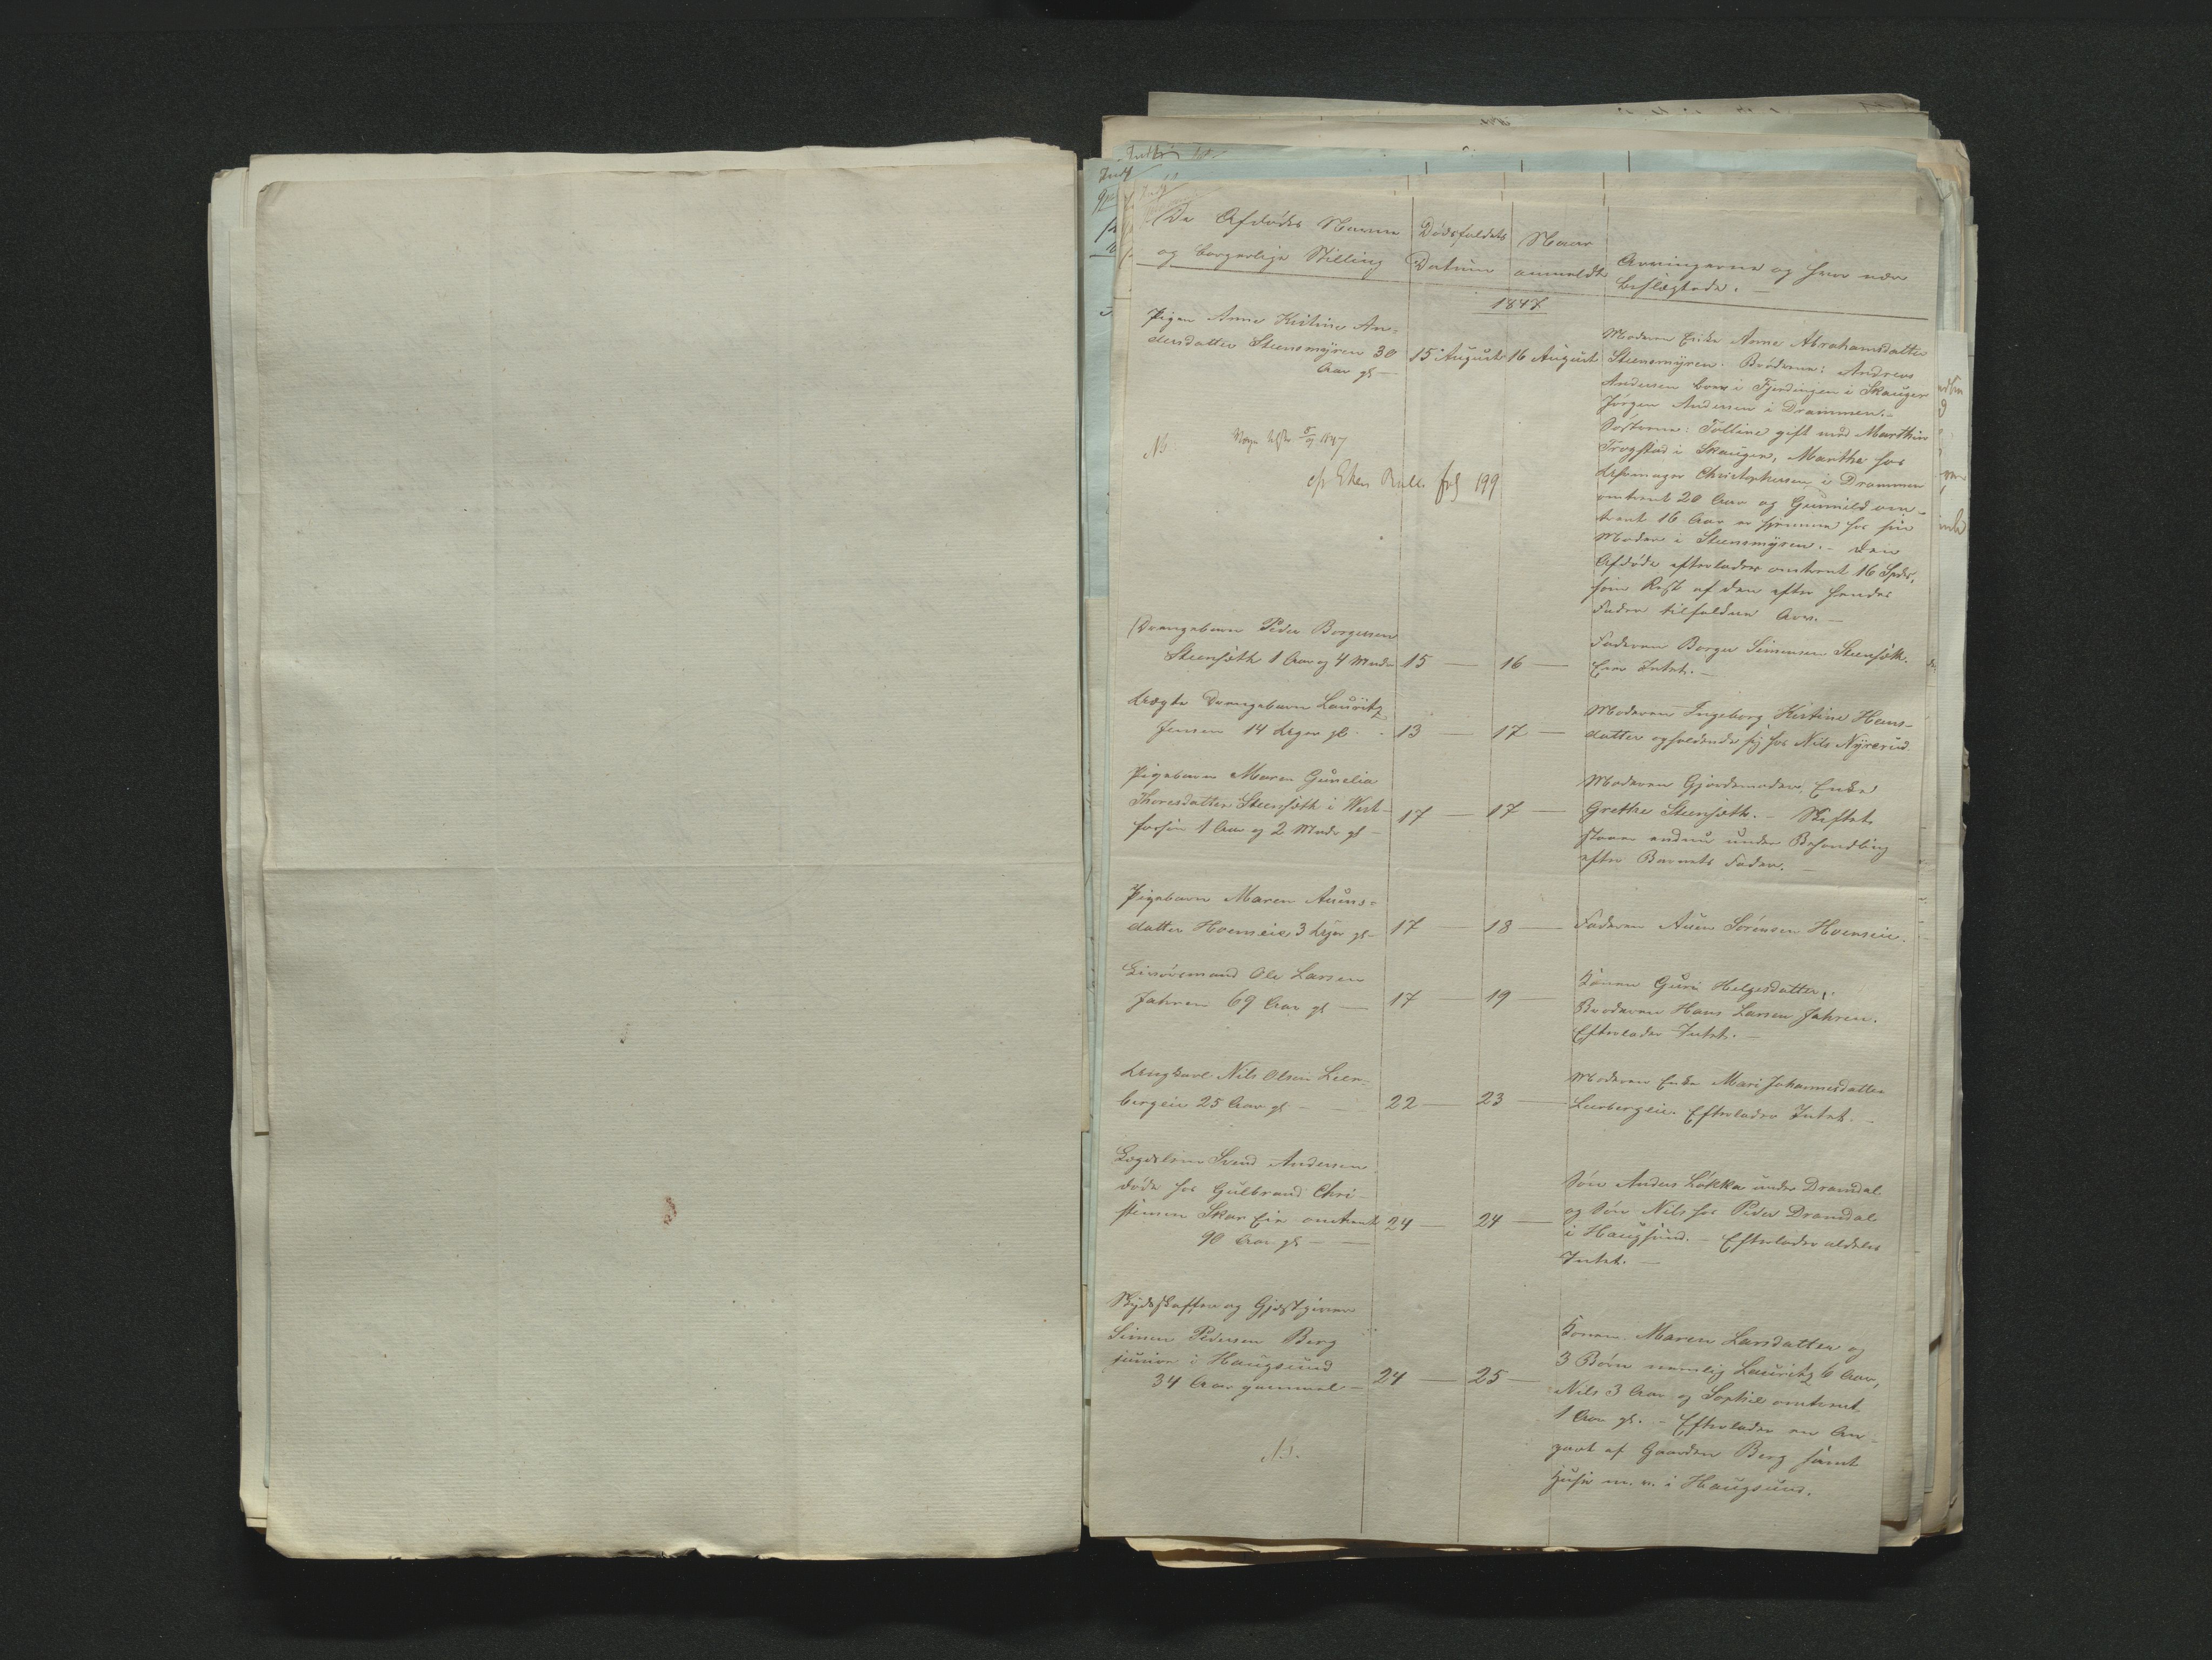 De Afdødes Navne
og borgerlige Stilling
Dødsfaldets
Datum
Naar
anmeldt
Arvingerne og hvor nær
beslægtede. —
1847
Pigen Anne Kistine An-
dersdatter Steensmyren 30
Aar gl —
15 August
16 August
Moderen Enke Anne Abrahamsdatter
Steensmyren. Brødrene: Andreas
Andersen boer i Fjerdingen i Skauger
Jørgen Andersen i Drammen. -
Søstrene: Tolline gift med Marthin
Trogstad i Skauger, Marthe hos
Uhrmager Christophersen i Drammen
omtrent 20 Aar og Gunnild om-
trent 16 Aar er hjemme hos sin
Moder i Steensmyren. - Den
Afdøde efterlader omtrent 16 Spd,
som Rest af den efter hendes
Fader tilfaldne Arv. —
NB
5/9 1847
cfr Eker fol 199
Drengebarn Peder Borgersen
Steensæth 1 Aar og 4 Mnd-
15 —
16 —
Faderen Borger Simensen Steensæth.
Eier Intet. —
Uægte Drengebarn Lauritz
Jensen 14 Uger gl -
13 —
17 —
Moderen Ingeborg Kistine Hans-
datter opholdende sig hos Nils Nyrerud
Pigebarn Maren Gunelia
Thoresdatter Steensæth i Vest-
fossen 1 Aar og 2 Mndr gl -
17 —
17 —
Moderen Gjordemoder, Enke
Grethe Steensæth. - Skiftet
staaer endnu under Behandling
efter Barnets Fader. —
Pigebarn Maren Auens-
datter Hoenseie 3 Uger gl -
17 —
18 —
Faderen Auen Sørensen Hoenseie.
Livøresmand Ole Larsen
Jahren 69 Aar gl —
17 —
19 —
Konen Guri Helgesdatter,
Broderen Hans Larsen Jahren.
Efterlader Intet. —
Ungkarl Nils Olsen Leer-
bergeie 25 Aar gl -
22 —
23 —
Moderen Enke Mari Johannesdatter
Leerbergeie. Efterlader Intet. -
Lægdslem Svend Andersen
døde hos Gulbrand Chri-
stensen Skar Eie omtrent
90 Aar gl —
24 —
24 —
Søn Anders Løkka under Dramdal
og Søn Nils hos Peder Dramdal
i Haugsund. - Efterlader aldeles
Intet. —
Skydsskaffer og Gjæstgiver
Simen Pedersen Berg
junior i Haugsund
34 Aar gammel -
24 —
25 —
Konen Maren Larsdatter og
3 Børn nemlig Lauritz 6 Aar,
Nils 3 Aar og Sophie omtrent
1 Aar gl. - Efterlader en An-
part af Gaarden Berg samt
Huse m. v. i Haugsund.
NB.